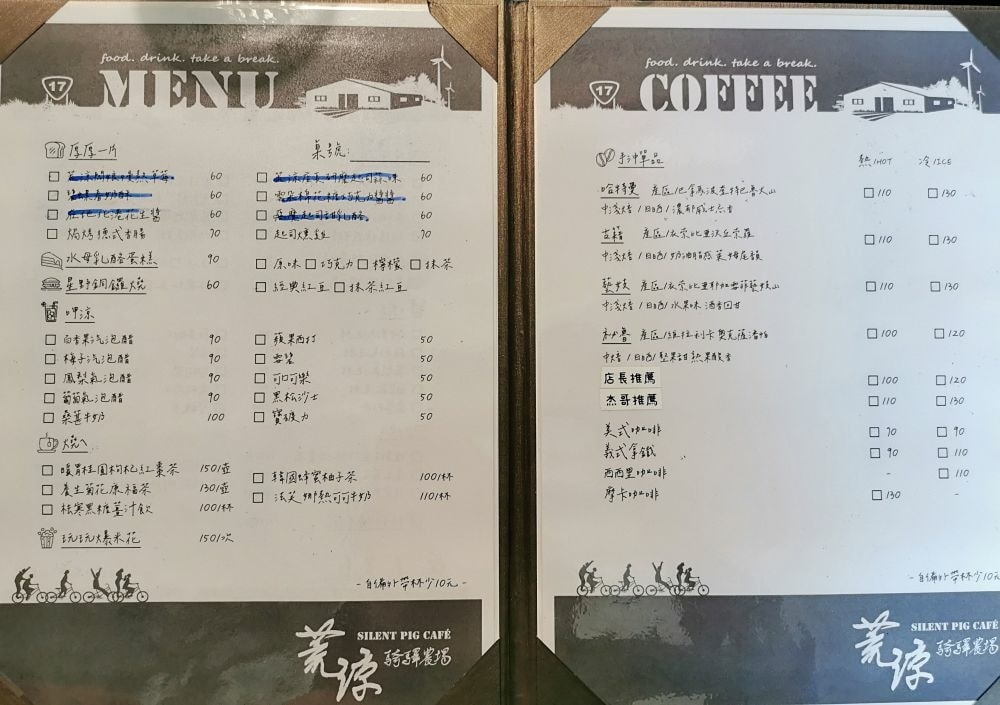 food. drink. take a break.
17 MENU
厚厚一片 桌號:
60 60
60 60
60 60
焗烤德式香腸 70 起司燻雞 70
水母乳酪蛋糕 90 原味 巧克力 檸檬 抹茶
星野銅鑼燒 60 經典紅豆 抹茶紅豆
呷涼
百香果汽泡醋 90 蘋果西打 50
梅子汽泡醋 90 雪碧 50
鳳梨氣泡醋 90 可口可樂 50
葡萄氣泡醋 90 黑松沙士 50
桑葚牛奶 100 寶礦力 50
燒ㄟ
暖胃桂圓枸杞紅棗茶 150/壺 韓國蜂蜜柚子茶 100/杯
養生菊花原福茶 130/壺 法芙娜熱可可牛奶 110/杯
祛寒黑糖薑汁飲 100/杯
玩玩爆米花 150/次
-自備外帶杯少10元-
荒涼 SILENT PIG CAFÉ
騎驛農場
food. drink. take a break.
17 COFFEE
手沖單品 熱/HOT 冷/ICE
哈特曼 產區/巴拿馬波奎特巴魯火山 110 130
中淺焙/日曬/
古籍 產區/衣索比亞 110 130
中淺焙/日曬/
藝妓 產區/衣索比亞耶加雪菲藝妓山 110 130
中淺焙/日曬/水果味 酒香回甘
祕魯 產區/ 100 120
中焙/日曬/堅果甜 熱果酸香
店長推薦 100 120
杰哥推薦 110 130
美式咖啡 70 90
義式拿鐵 90 110
西西里咖啡 - 110
摩卡咖啡 130 -
-自備外帶杯少10元
荒涼 SILENT PIG CAFÉ
騎驛農場